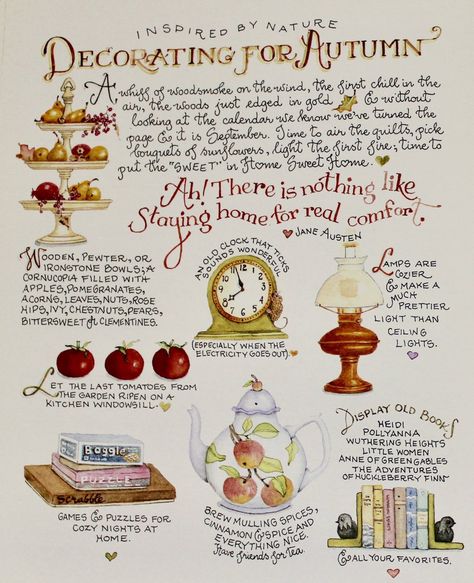 INSPIRED BY NATURE
DECORATING FOR AUTUMN
A whiff of woodsmoke on the wind, the first chill in the
air, the woods just edged in gold & without
looking at the calendar we know we've turned the
page & it is September. Time to air the quilts, pick
bouquets of sunflowers, light the first fire; time to
put the "SWEET" in Home Sweet Home.
Ah! There is nothing like
Staying home for real comfort.
JANE AUSTEN
WOODEN, PEWTER, OR
IRONSTONE BOWLS; A
CORNUCOPIA FILLED WITH
APPLES, POMEGRANATES,
ACORNS, LEAVES, NUTS, ROSE
HIPS, IVY, CHESTNUTS, PEARS,
BITTERSWEET & CLEMENTINES.
AN OLD CLOCK THAT TICKS
SOUNDS WONDERFUL
(ESPECIALLY WHEN THE
ELECTRICITY GOES OUT).
LAMPS ARE
COZIER
& MAKE A
MUCH
PRETTIER
LIGHT THAN
CEILING
LIGHTS.
LET THE LAST TOMATOES FROM
THE GARDEN RIPEN ON A
KITCHEN WINDOWSILL.
Boggle
PUZZLE
Scrabble
GAMES & PUZZLES FOR
COZY NIGHTS AT
HOME.
BREW MULLING SPICES,
CINNAMON & SPICE AND
EVERYTHING NICE.
Have friends for Tea.
DISPLAY OLD BOOKS
HEIDI
POLLYANNA
WUTHERING HEIGHTS
LITTLE WOMEN
ANNE OF GREEN GABLES
THE ADVENTURES
OF HUCKLEBERRY FINN
& ALL YOUR FAVORITES.